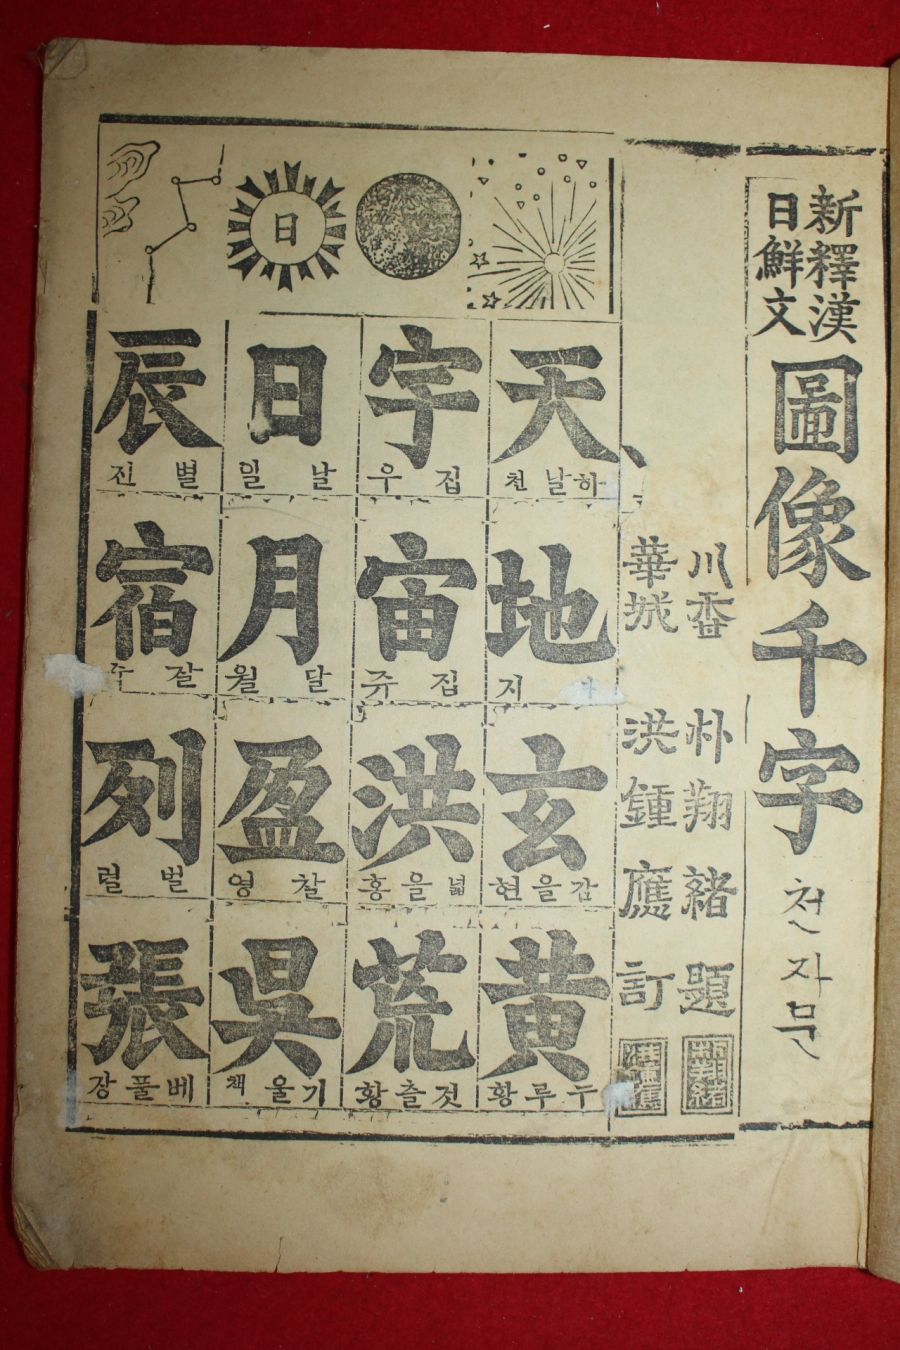 新釋漢
日鮮文
圖像千字
천자문
川
朴翔緖 題
朴翔緖
華城
洪鍾應 訂
日
天
하날 천
地
지
玄
감을 현
黃
누루 황
宇
집 우
宙
집 쥬
洪
넓을 홍
荒
것츨 황
日
날 일
月
달 월
盈
찰 영
昃
기울 책
辰
별 진
宿
잘
列
벌 렬
張
베풀 장